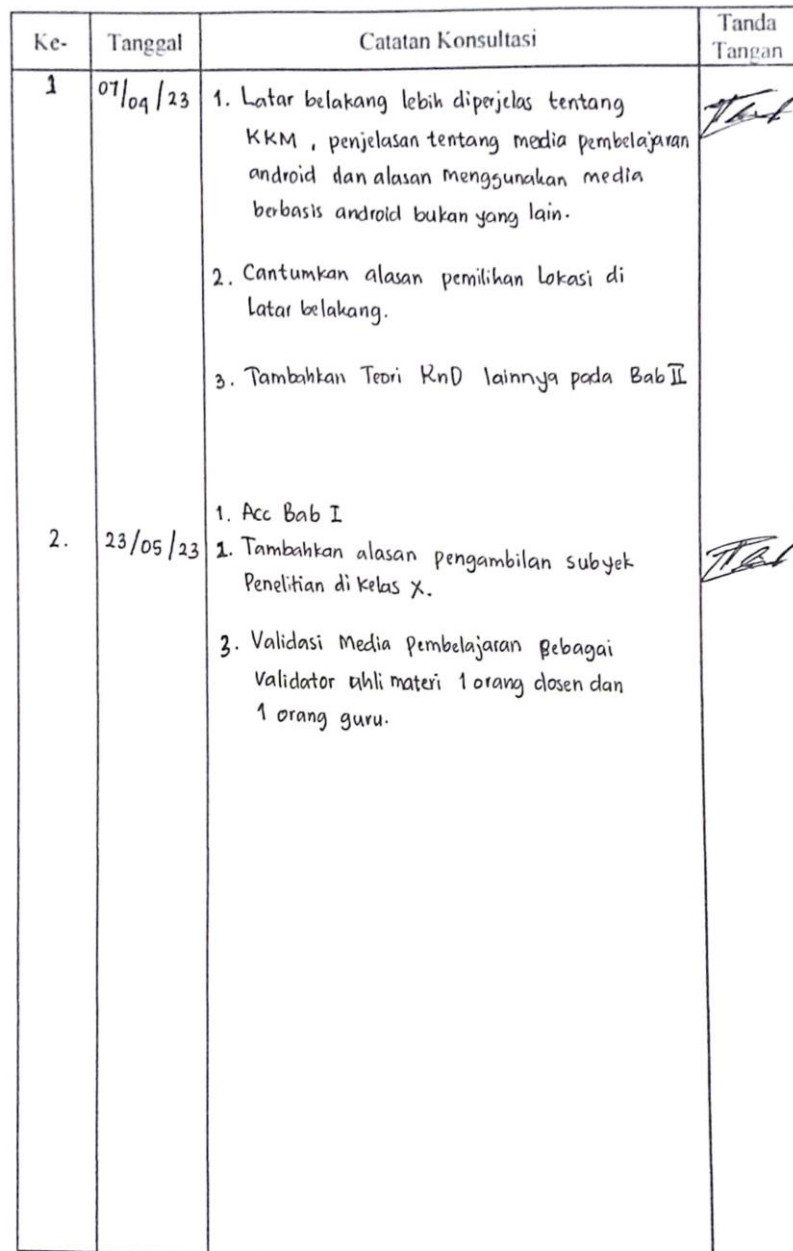 Ke- Tanggal Catatan Konsultasi Tanda Tangan
1 07/04/23 1. Latar belakang lebih diperjelas tentang
KKM, penjelasan tentang media pembelajaran
android dan alasan menggunakan media
berbasis android bukan yang lain.
2. Cantumkan alasan pemilihan Lokasi di
Latar belakang.
3. Tambahkan Teori RnD lainnya pada Bab II
1. Acc Bab I
2. 23/05/23 2. Tambahkan alasan pengambilan subyek
Penelitian di Kelas X.
3. Validasi Media Pembelajaran Sebagai
Validator ahli materi 1 orang dosen dan
1 orang guru.